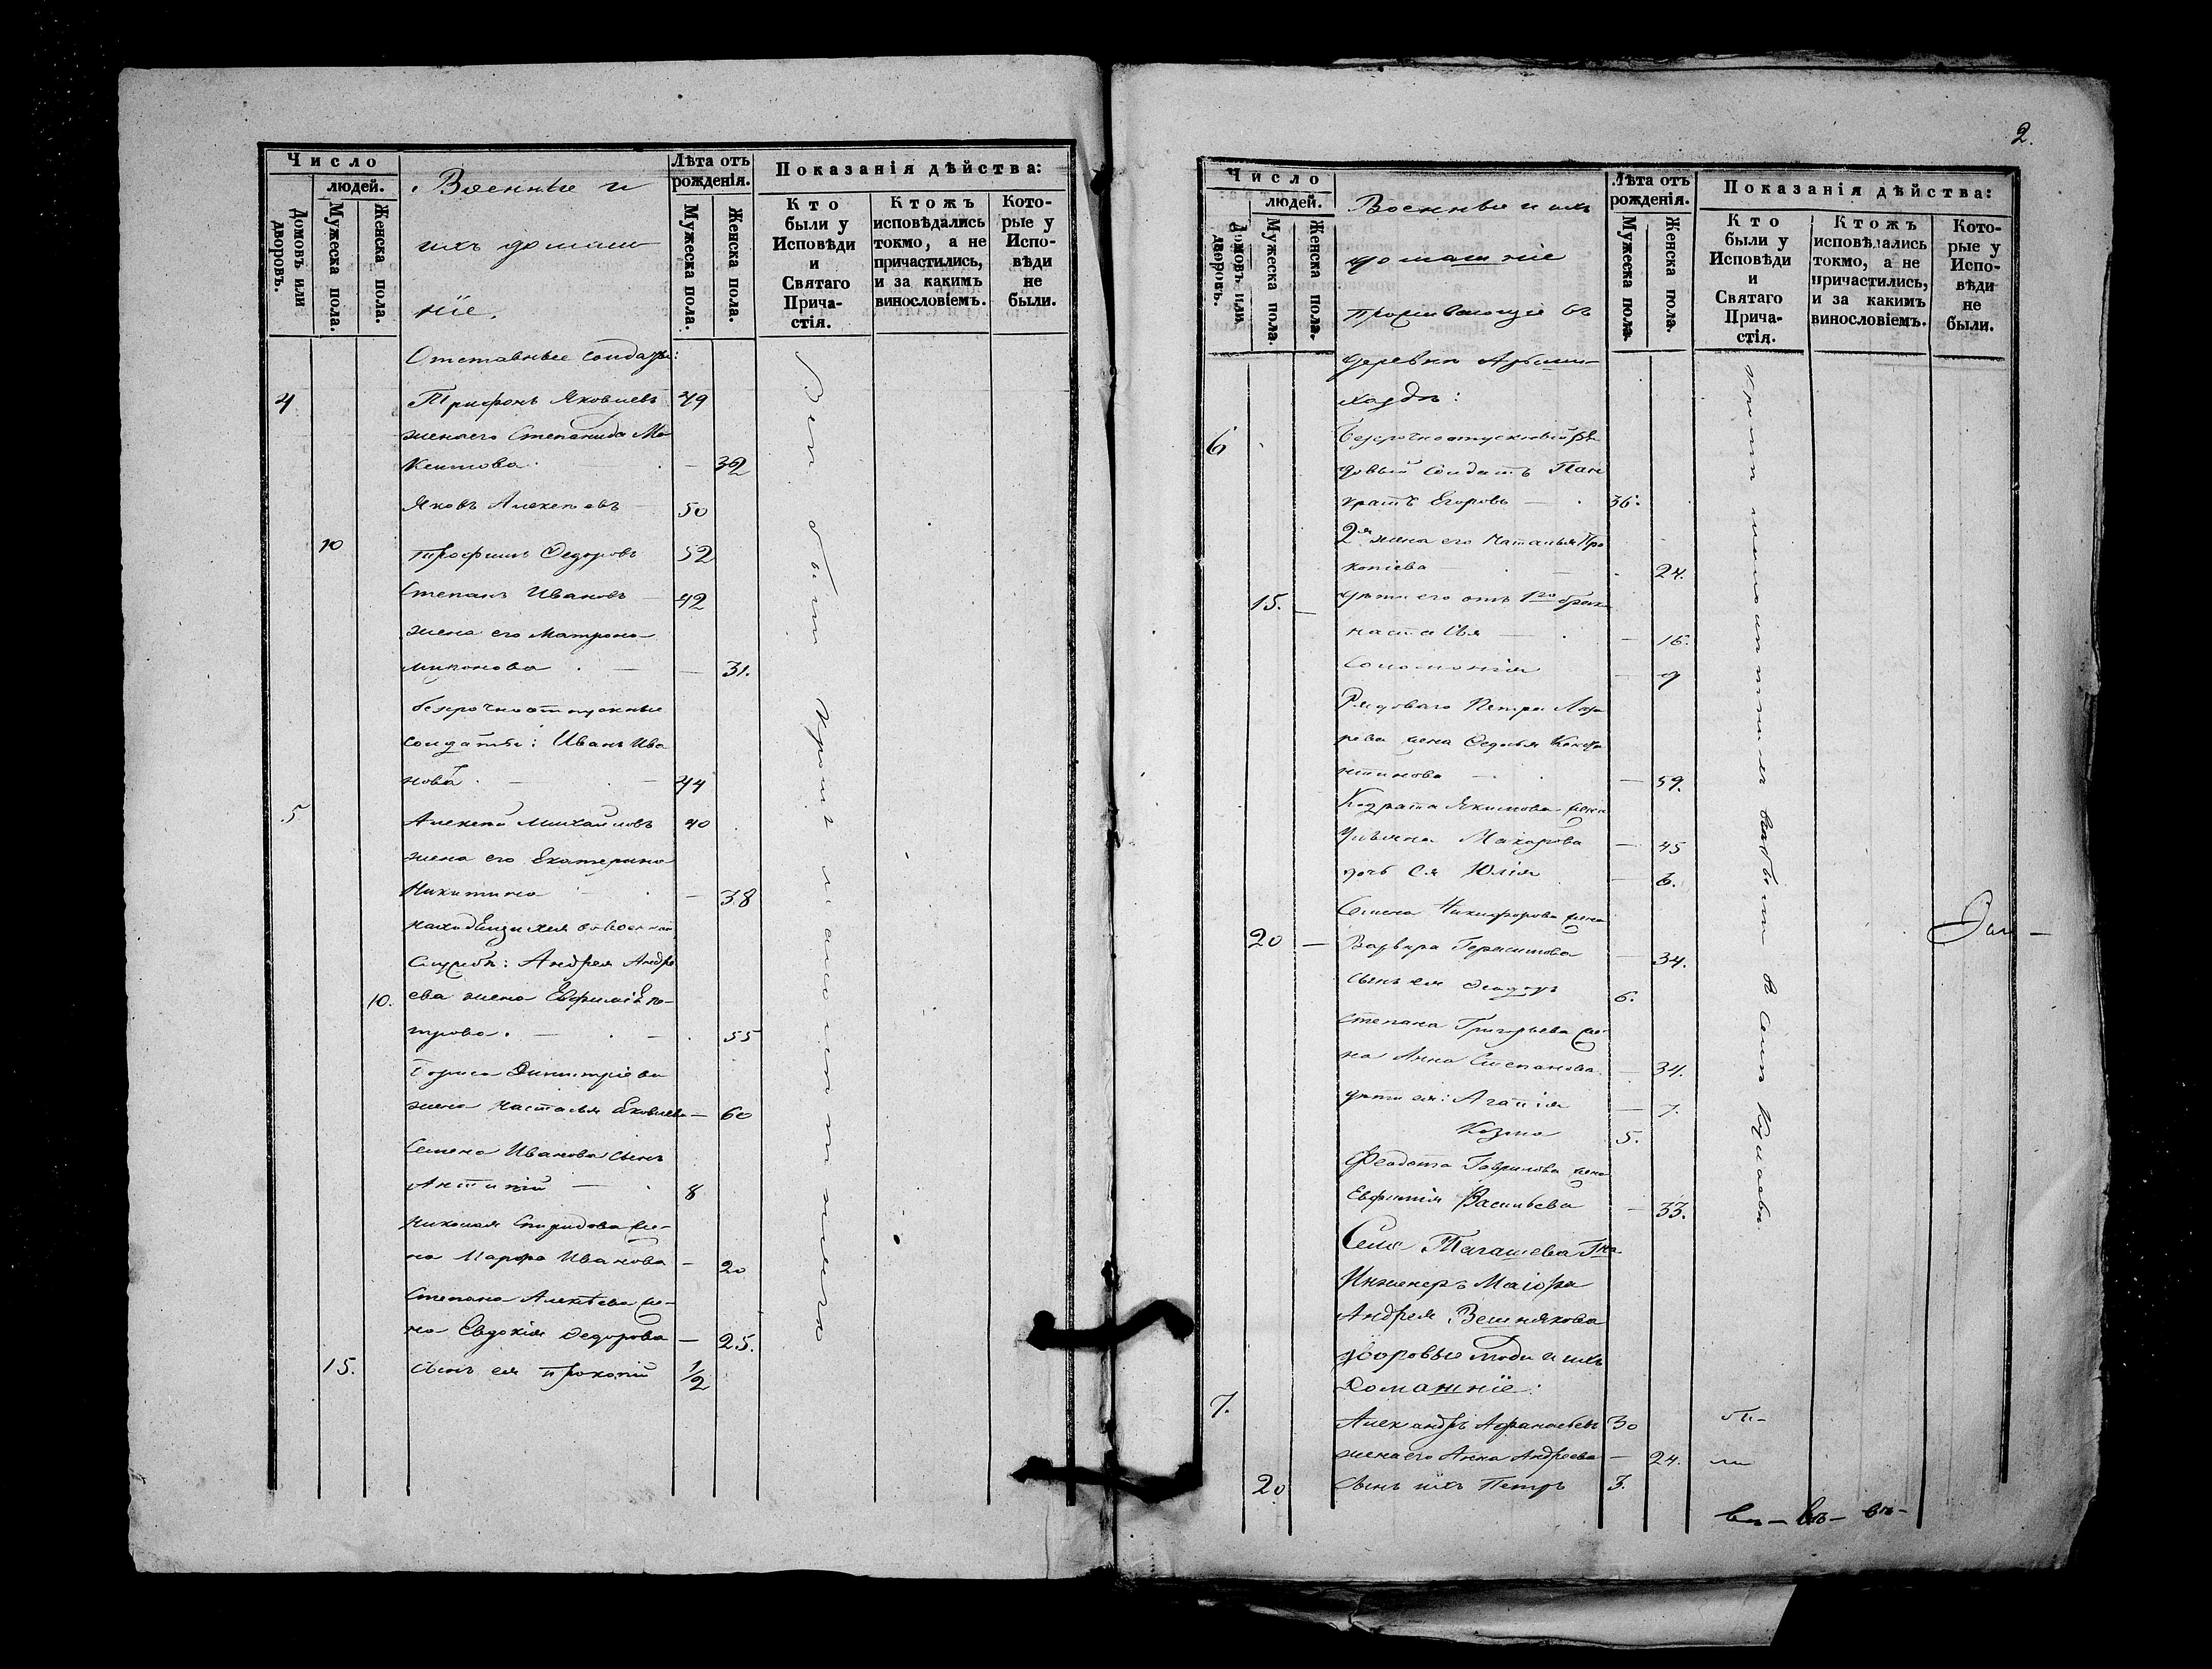 Число
людей.
Домовъ или дворовъ.
Мужеска пола.
Женска пола.
Военные и
ихъ домаш
ніе.
Лѣта отъ
рожденія.
Мужеска пола.
Женска пола.
Показанія дѣйства:
Кто
были у
Исповѣди
и
Святаго
Прича-
стія.
Ктожъ
исповѣдались
токмо, а не
причастились,
и за какимъ
винословіемъ.
Кото-
рые у
Испо-
вѣди
не
были.
Отставные солдаты:
4 Трифонъ Яковлевъ 49
жена его Степанида Ма
ксимова — 32
Яковъ Алексѣевъ 50
10 Трофимъ Федоровъ 52
Степанъ Ивановъ 42
жена его Матрона
Миронова — 31.
безсрочноотпускные
солдаты: Иванъ Ива
новъ 44
5 Алексѣй Михайловъ 40
жена его Екатерина
Никитина — 38
находящихся въ военной
службѣ: Андрея Андре
10. ева жена Евфимія Пе-
трова — 55
Бориса Димитріева
жена Настасья Яковлева — 60
Семена Иванова сынъ
Антипій 8
Николая Спиридова же-
на Марфа Иванова — 20
Степана Алексѣева же-
на Евдокія Федорова — 25.
15. сынъ ея Прокопій 1/2
Всѣ были кромѣ малолѣтнего
2.
Число
людей.
Домовъ или дворовъ.
Мужеска пола.
Женска пола.
Военные и ихъ
домашніе
проживающіе въ
Лѣта отъ
рожденія.
Мужеска пола.
Женска пола.
Показанія дѣйства:
Кто
были у
Исповѣди
и
Святаго
Прича-
стія.
Ктожъ
исповѣдались
токмо, а не
причастились,
и за какимъ
винословіемъ.
Кото-
рые у
Испо-
вѣди
не
были.
деревнѣ
6 Безсрочноотпускный ря
довый солдатъ Пан
кратъ Егоровъ — 36.
2я жена его Наталья Про
копіева — 24.
15. — дѣти его отъ 1го брака
Настасья — 16.
Соломонія — 9
Рядоваго Петра Лаза
рева жена Федосья Конста
нтинова — 59.
Кодрата Якимова жена
Ульяна Макарова — 45
дочь ея Юлія — 6.
Семена Никифорова жена
20 — Варвара Герасимова — 34.
сынъ ея 6.
Степана Григорьева же-
на Анна Степанова — 34.
дѣти ея: Агапія — 7.
Козма 5.
Феодота Гаврилова жена
Евфимія Васильева — 33.
Села Тагашева Гна
Инженеръ Маіора
Андрея Вешнякова
дворовые люди и ихъ
домашніе:
7. Александръ Афанасьевъ 30
жена его Анна Андреева — 24.
20 сынъ ихъ Петръ 3.